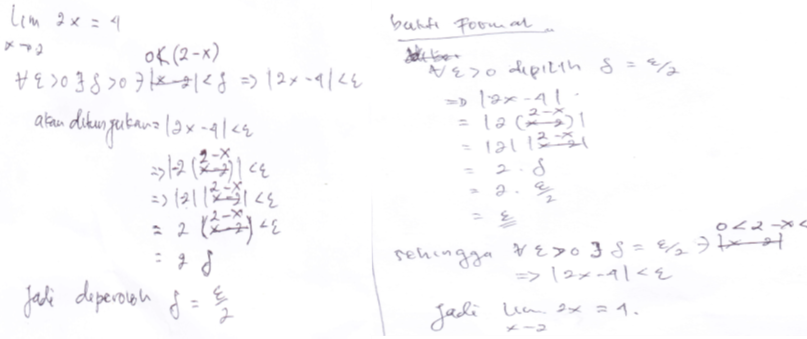 lim 2x = 4
x → 2
0< (2-x)
∀ ε>0 ∃ δ>0 ∋ |x-2| < δ => |2x-4|<ε
akan ditunjukan = |2x-4|<ε
2-x
=> |-2 (x-2)| <ε
2-x
=> |2| |x-2| <ε
2-x
= 2 (x-2) <ε
= 2 δ
Jadi diperoleh δ = ε/2
bukti Formal
∀ ε>0 dipilih δ = ε/2
=> |2x-4|
2-x
= |2 (x-2)|
2-x
= |2| |x-2|
= 2 . δ
= 2 . ε/2
= ε
0<2-x<
sehingga ∀ ε>0 ∃ δ = ε/2 ∋ |x-2|
=> |2x-4|<ε
Jadi lim 2x = 4.
x→2